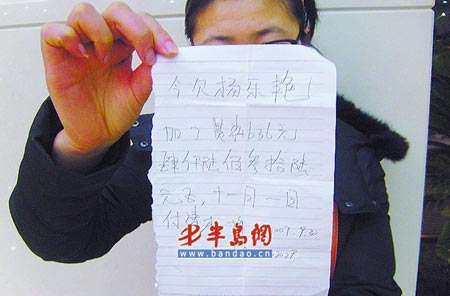 今欠杨乐艳
加工费 4636元
肆仟陆佰叁拾陆
元正，十一月一日
付清
半岛网
www.bandao.cn